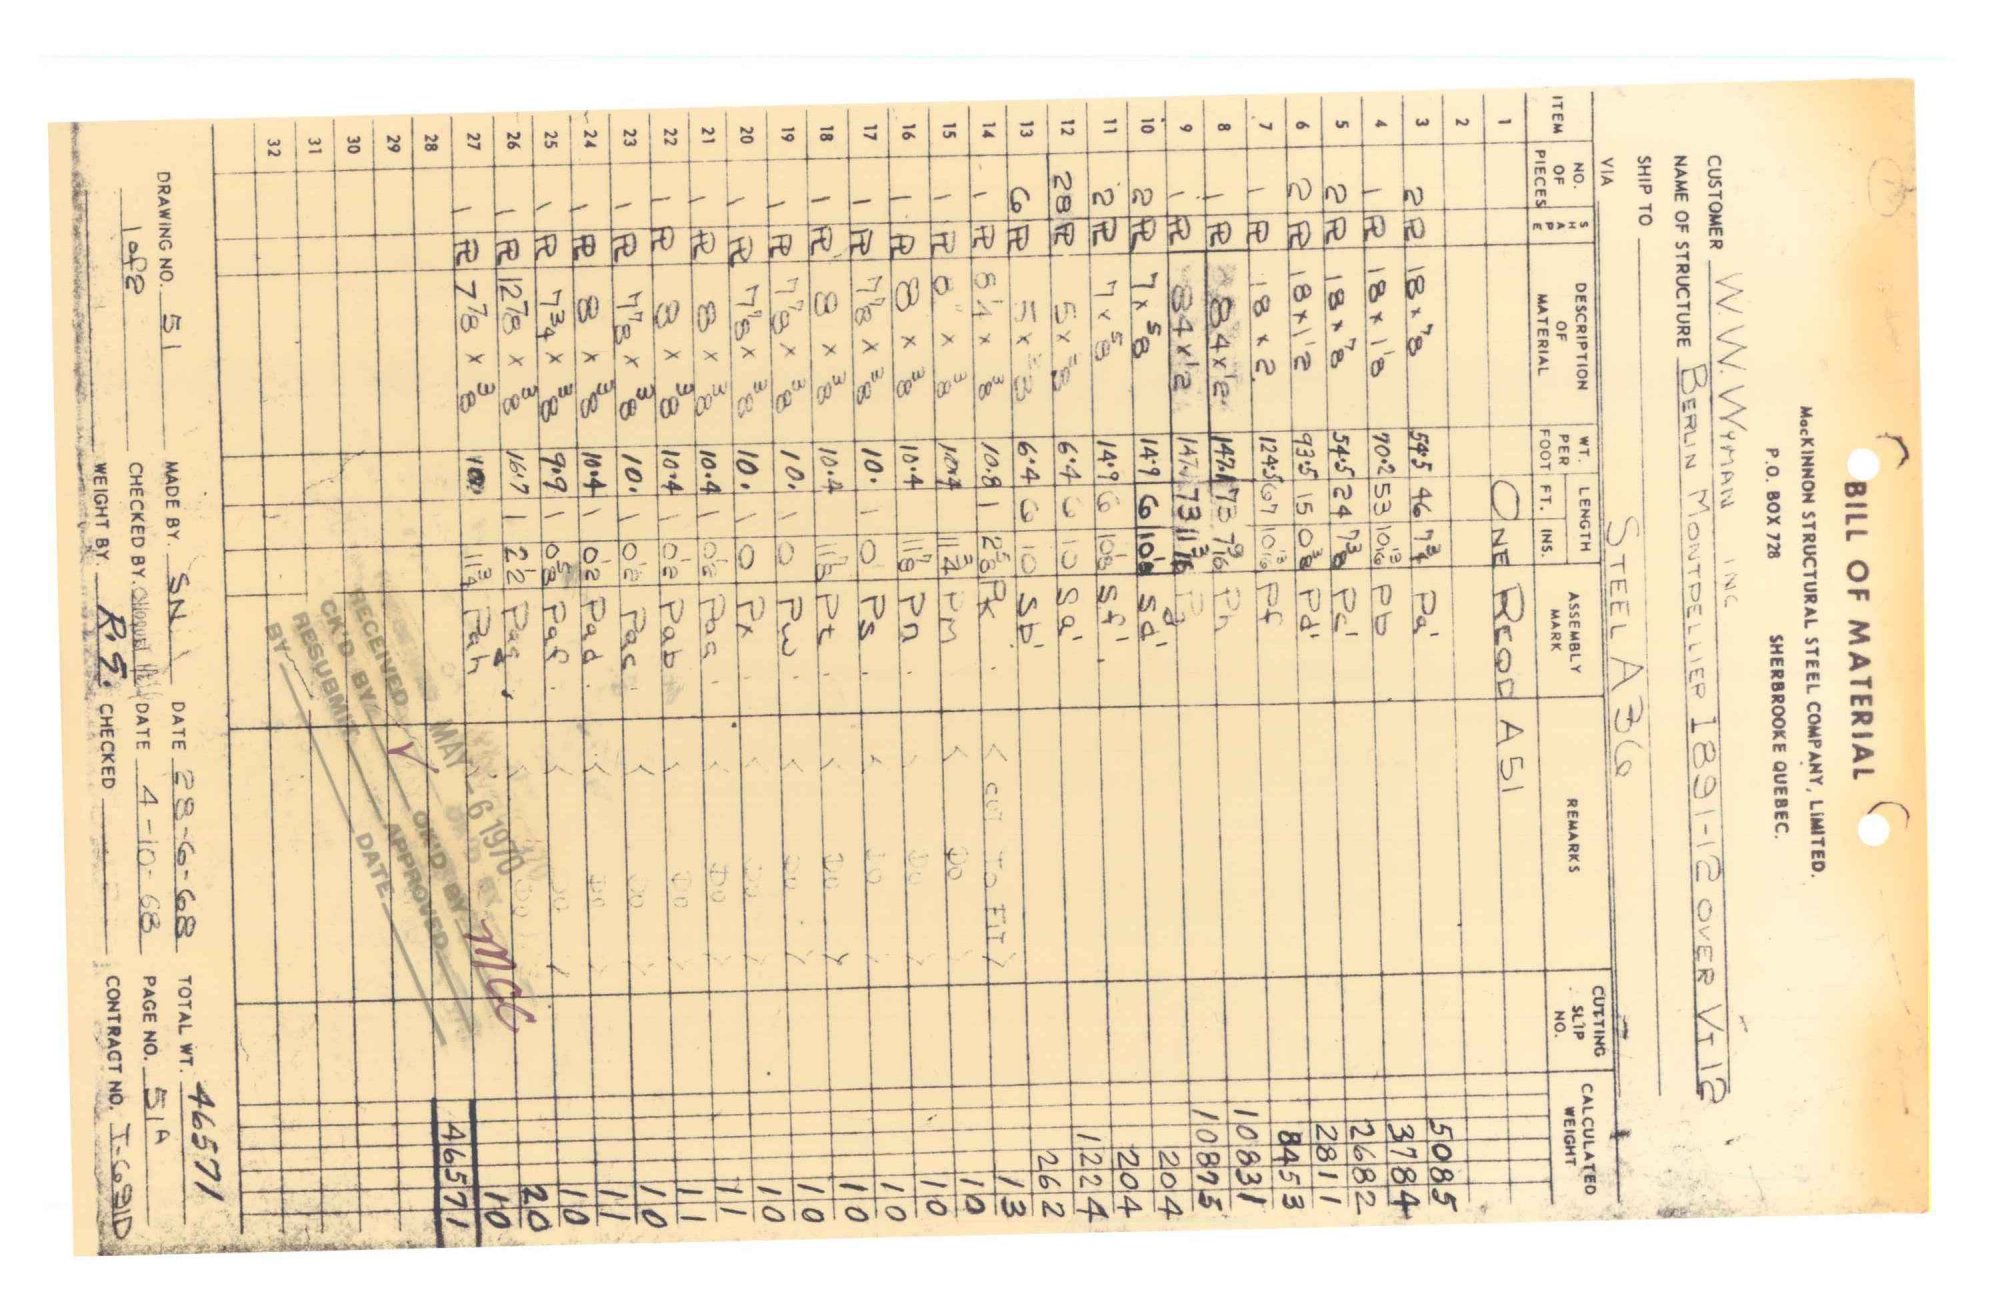 BILL OF MATERIAL
MacKINNON STRUCTURAL STEEL COMPANY, LIMITED.
P.O. BOX 728 SHERBROOKE QUEBEC.
CUSTOMER W.W. WYMAN INC
NAME OF STRUCTURE BERLIN MONTPELLIER 1891-12 OVER VT 12
SHIP TO
VIA STEEL A36
ITEM NO. OF PIECES SHAPE DESCRIPTION OF MATERIAL WT. PER FOOT LENGTH FT. INS. ASSEMBLY MARK REMARKS CUTTING SLIP NO. CALCULATED WEIGHT
1 ONE REQD A51
2
3 2 PL 18 x 7/8 54.5 46 7 3/4 Pa' 5085
4 1 PL 18 x 1 1/8 70.2 53 10 13/16 Pb 3784
5 2 PL 18 x 7/8 54.5 24 7 3/8 Pc' 2682
6 2 PL 18 x 1 1/2 93.5 15 0 3/8 Pd' 2811
7 1 PL 18 x 2 124.5 67 10 13/16 Pf 8453
8 1 PL 84 x 1/2 147.1 73 7 9/16 Ph 10831
9 1 PL 84 x 1/2 147.1 73 11 3/16 Pg 10875
10 2 PL 7 x 5/8 14.9 6 10 1/8 Sd' 204
11 2 PL 7 x 5/8 14.9 6 10 1/8 Sf' 204
12 28 PL 5 x 3/8 6.4 6 10 Sa' 1224
13 6 PL 5 x 3/8 6.4 6 10 Sb' 262
14 1 PL 8 1/4 x 3/8 10.8 1 2 5/8 Pk < CUT TO FIT > 13
15 1 PL 8 x 3/8 10.4 11 3/4 Pm < Do 10
16 1 PL 8 x 3/8 10.4 11 7/8 Pn Do > 10
17 1 PL 7 7/8 x 3/8 10. 1 0 Ps < Do > 10
18 1 PL 8 x 3/8 10.4 11 7/8 Pt < Do > 10
19 1 PL 7 7/8 x 3/8 10. 1 0 Pw Do > 10
20 1 PL 7 7/8 x 3/8 10. 1 0 Px < Do > 10
21 1 PL 8 x 3/8 10.4 1 0 1/2 Paa < Do > 11
22 1 PL 8 x 3/8 10.4 1 0 1/2 Pab < Do > 11
23 1 PL 7 7/8 x 3/8 10. 1 0 1/2 Pac < Do > 10
24 1 PL 8 x 3/8 10.4 1 0 1/2 Pad < Do > 11
25 1 PL 7 3/4 x 3/8 9.9 1 0 5/8 Paf < Do > 10
26 1 PL 12 7/8 x 3/8 16.7 1 2 1/2 Pag < Do 20
27 1 PL 7 7/8 x 3/8 10. 11 3/4 Pah 10
28 46571
29
30
31
32
RECEIVED MAY - 6 1970
CK'D BY OK'D BY MCC
RESUBMIT APPROVED
BY DATE
DRAWING NO. 51 MADE BY. SN DATE 28-6-68 TOTAL WT. 46571
1 of 2 CHECKED BY. DATE 4-10-68 PAGE NO. 51A
WEIGHT BY. R.S. CHECKED CONTRACT NO. T-691D